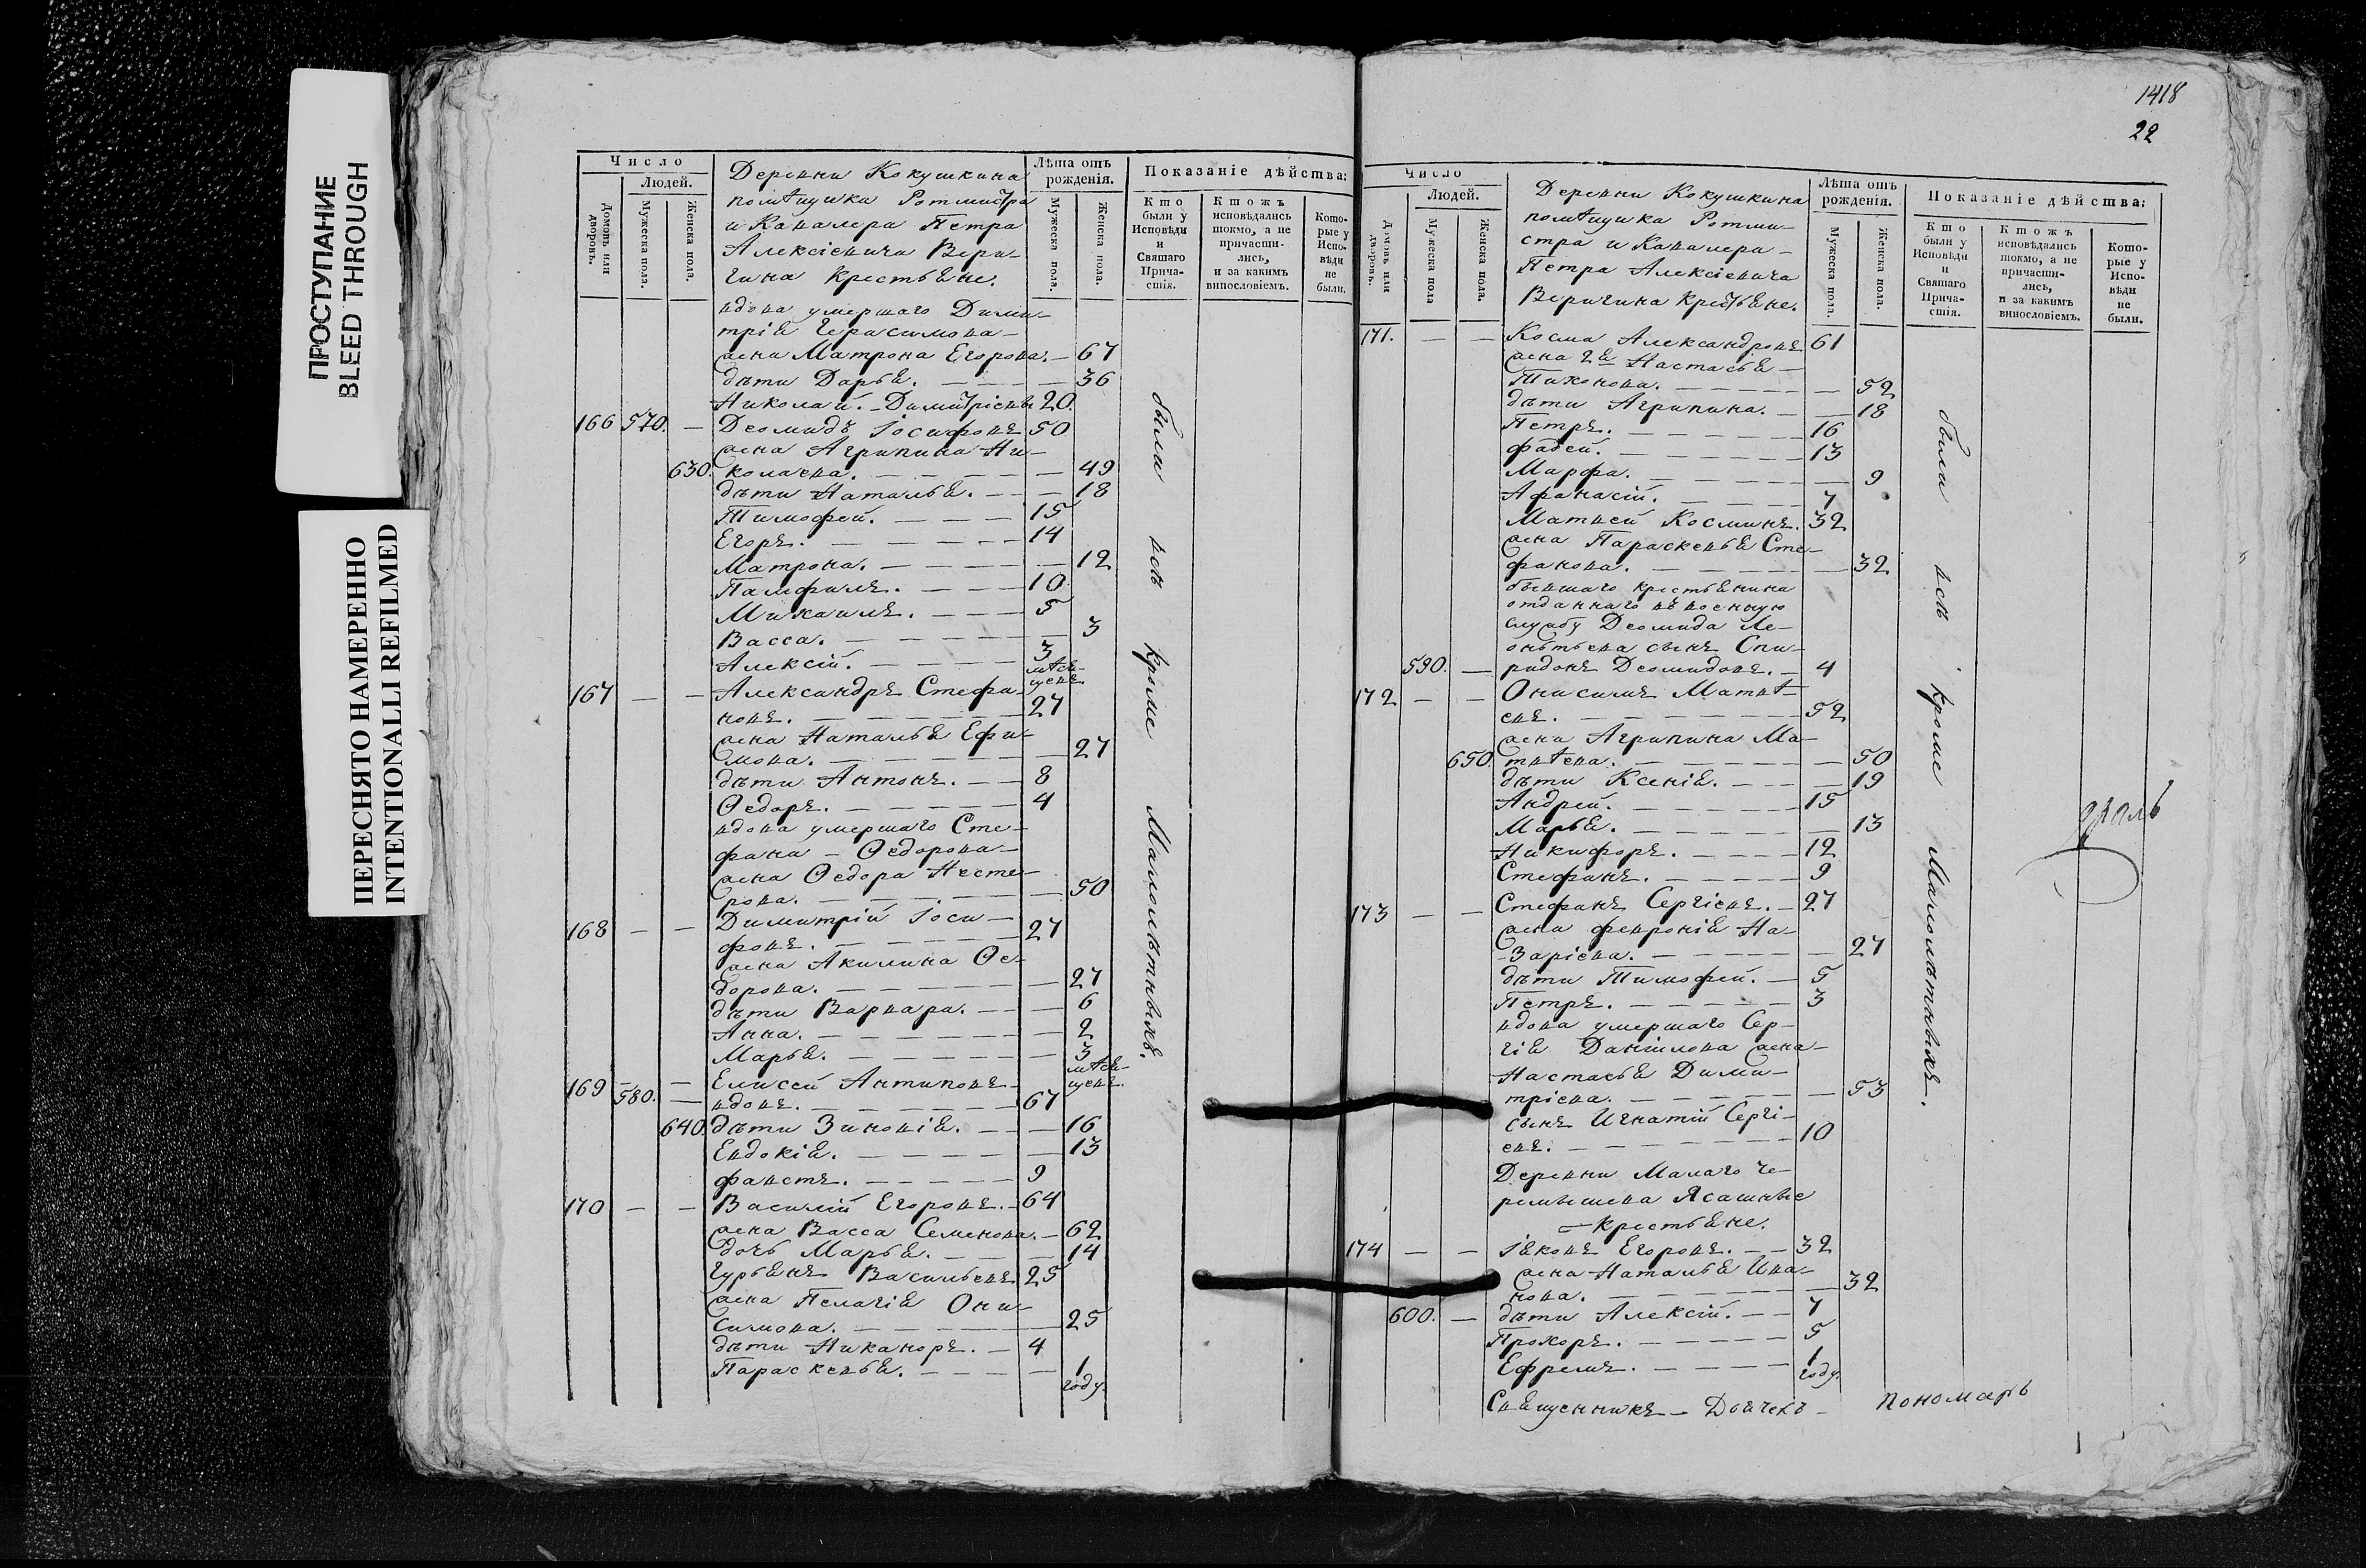 ПРОСТУПАНИЕ
BLEED THROUGH
ПЕРЕСНЯТО НАМЕРЕННО
INTENTIONALLI REFILMED
Число
Людей.
Домовъ или дворовъ.
Мужеска пола.
Женска пола.
Деревни Кокушкина
помѣщика Ротмистра
и Кавалера Петра
Алексіевича Вери-
гина крестьяне.
Лѣта отъ рожденія.
Мужеска пола.
Женска пола.
Показаніе дѣйства:
Кто были у Исповѣди и Святаго Прича-стія.
Ктожъ исповѣдались токмо, а не причасти-лись, и за какимъ винословіемъ.
Кото-рые у Испо-вѣди не были.
вдова умершаго Дими-
трія Герасимова
жена Матрона Егорова. — 67
дѣти Дарья. — 36
Николай. Димитріевъ 20.
166 570. — Деомидъ Іосифовъ 50
жена Агрипина Ни-
630. колаева. — 49
дѣти Наталья. — 18
Тимофей. — 15
Егоръ. — 14
Матрона. — 12
Памфилъ. — 10.
Михаилъ. — 5
Васса. — 3
Алексій. — 3 мѣся-цевъ
167 — — Александръ Стефа-
новъ. — 27
жена Наталья Ефи-
мова. — 27
дѣти Антонъ. — 8
Ѳедоръ. — 4
вдова умершаго Сте-
фана — Ѳедорова
жена Ѳедора Несте-
рова. — 50
168 — — Димитрій Іоси-
фовъ. — 27
жена Акилина Ѳе-
дорова. — 27
дѣти Варвара. — 6
Анна. — 2
Марья. — 3 мѣся-цевъ.
169 — — Елисей Антиповъ
580. — вдовъ. — 67
640. дѣти Зиновія. — 16
Евдокія. — 13
Фавстъ. — 9
170 — — Василій Егоровъ. — 64
жена Васса Семенова. — 62
дочь Марья. — 14
Гурьянъ Васильевъ 25
жена Пелагія Они-
симова. — 25
дѣти Никаноръ. — 4
Параскевья. — 1 году.
были всѣ кроме Малолѣтныхъ.
1418
22
Число
Людей.
Домовъ или дворовъ.
Мужеска пола
Женска пола.
Деревни Кокушкина
помѣщика Ротми-
стра и Кавалера
Петра Алексіевича
Веригина крестьяне.
Лѣта отъ рожденія.
Мужеска пола.
Женска пола.
Показаніе дѣйства:
Кто были у Исповѣди и Святаго Прича-стія.
Ктожъ исповѣдались токмо, а не причасти-лись, и за какимъ винословіемъ.
Кото-рые у Испо-вѣди не были.
171. — — Косма Александровъ 61
жена 2я Настасья
Тихонова. — 52
дѣти Агрипина. — 18
Петръ. — 16
Фадей. — 13
Марфа. — 9
Афанасій. — 7
Матвей Косминъ. 32
жена Параскевья Сте-
фанова. — 32
бывшаго крестьянина
отданнаго въ военную
службу Деомида Ле-
онтьева сынъ Спи-
590. — ридонъ Деомидовъ. — 4
172 — — Онисимъ Матвѣ-
евъ. — 52
жена Агрипина Ма-
650. твѣева. — 50
дѣти Ксенія. — 19
Андрей. — 15
Марья. — 13
Никифоръ. — 12
Стефанъ. — 9
173 — — Стефанъ Сергіевъ. — 27
жена Февронія На-
заріева. — 27
дѣти Тимофей. — 5
Петръ. — 3
вдова умершаго Сер-
гія Даніилова жена
Настасья Дими-
тріева. — 53
сынъ Игнатій Сергі-
евъ. — 10
Деревни Малаго Че-
ремышева Ясашные
крестьяне.
174 — — Іаковъ Егоровъ. — 32
жена Наталья Ива-
нова. — 32
600. — дѣти Алексій. — 7
Прохоръ. — 5
Ефремъ. — 1 году.
были всѣ кроме Малолѣтныхъ.
Священникъ — Дьячекъ — пономарь